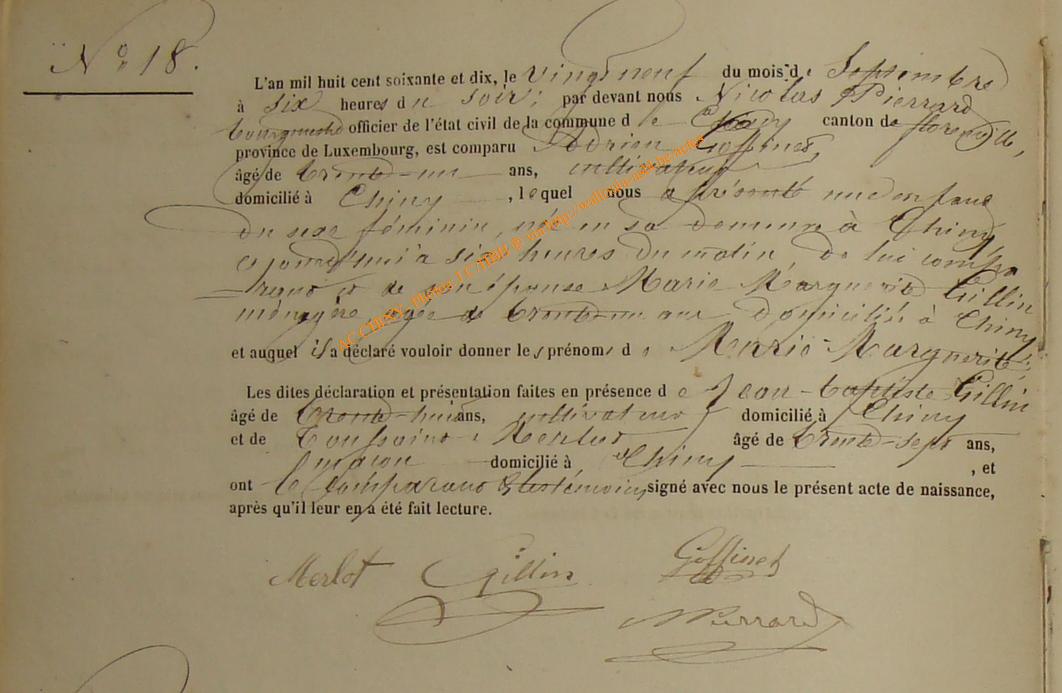 N° 18.
L'an mil huit cent soixante et dix, le vingt neuf du mois d e Septembre
à six heures d u soir; par devant nous Nicolas Pierrard
bourgmestre officier de l'état civil de la commune d e Chiny canton de florenville,
province de Luxembourg, est comparu Adrien Goffinet,
âgé de trente-un ans, cultivateur
domicilié à Chiny, lequel nous a présenté un enfant
du sexe féminin, née en sa demeure à Chiny
ce jourd'hui à six heures du matin, de lui compa
rant et de son épouse Marie Marguerite Gillin
ménagère, agée de trente ans domiciliée à Chiny
et auquel il a déclaré vouloir donner les prénoms d e Marie-Marguerite;
Les dites déclaration et présentation faites en présence d e Jean-baptiste Gillin
âgé de trente-huit ans, cultivateur domicilié à Chiny
et de Toussaint Merlot âgé de trente-sept ans,
maçon domicilié à Chiny, et
ont le Comparant & les témoins signé avec nous le présent acte de naissance,
après qu'il leur en a été fait lecture.
Merlot Gillin Goffinet
NPierrard